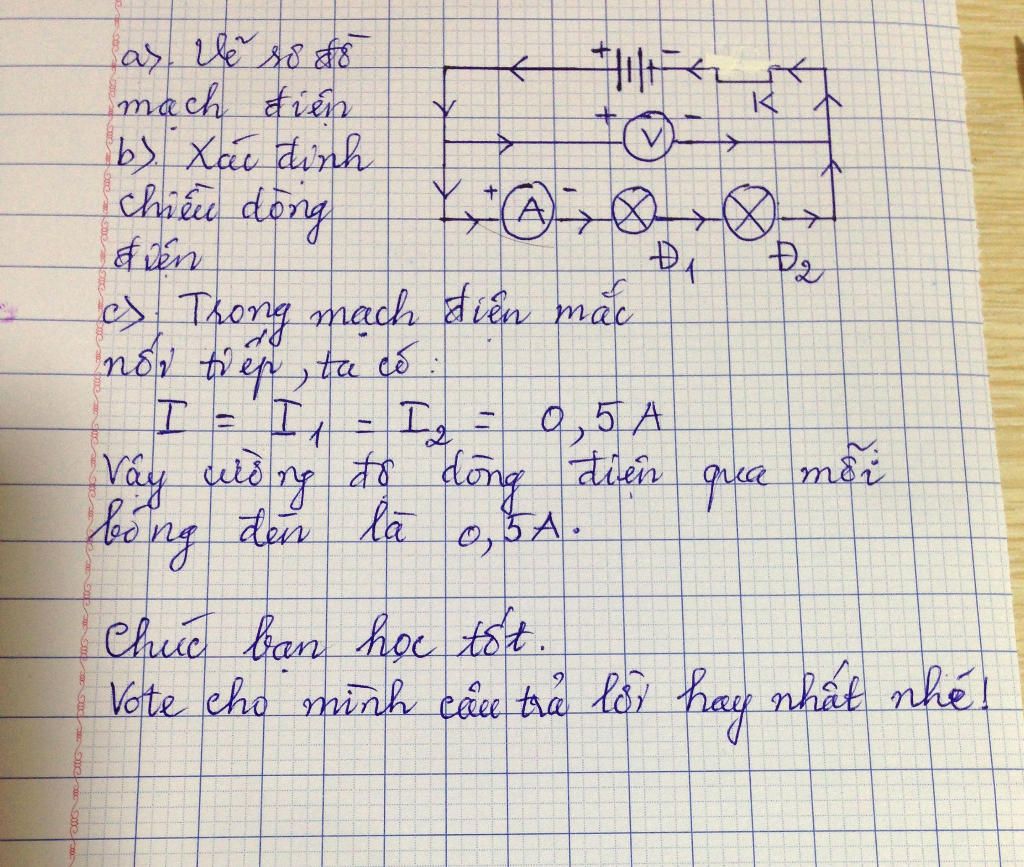 a). Vẽ sơ đồ
mạch điện
b). Xác định
chiều dòng
điện
+ - K
+ V -
+ A -
Đ1 Đ2
c). Trong mạch điện mắc
nối tiếp, ta có:
I = I1 = I2 = 0,5A
Vậy cường độ dòng điện qua mỗi
bóng đèn là 0,5A.
Chúc bạn học tốt.
Vote cho mình câu trả lời hay nhất nhé!